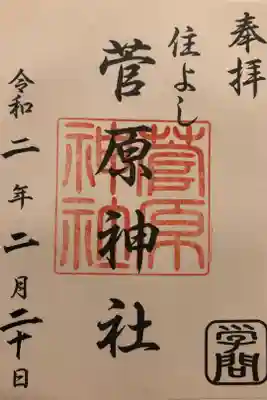 奉拝
住よし
菅原神社
菅原
神社
令和二年二月二十日
学問